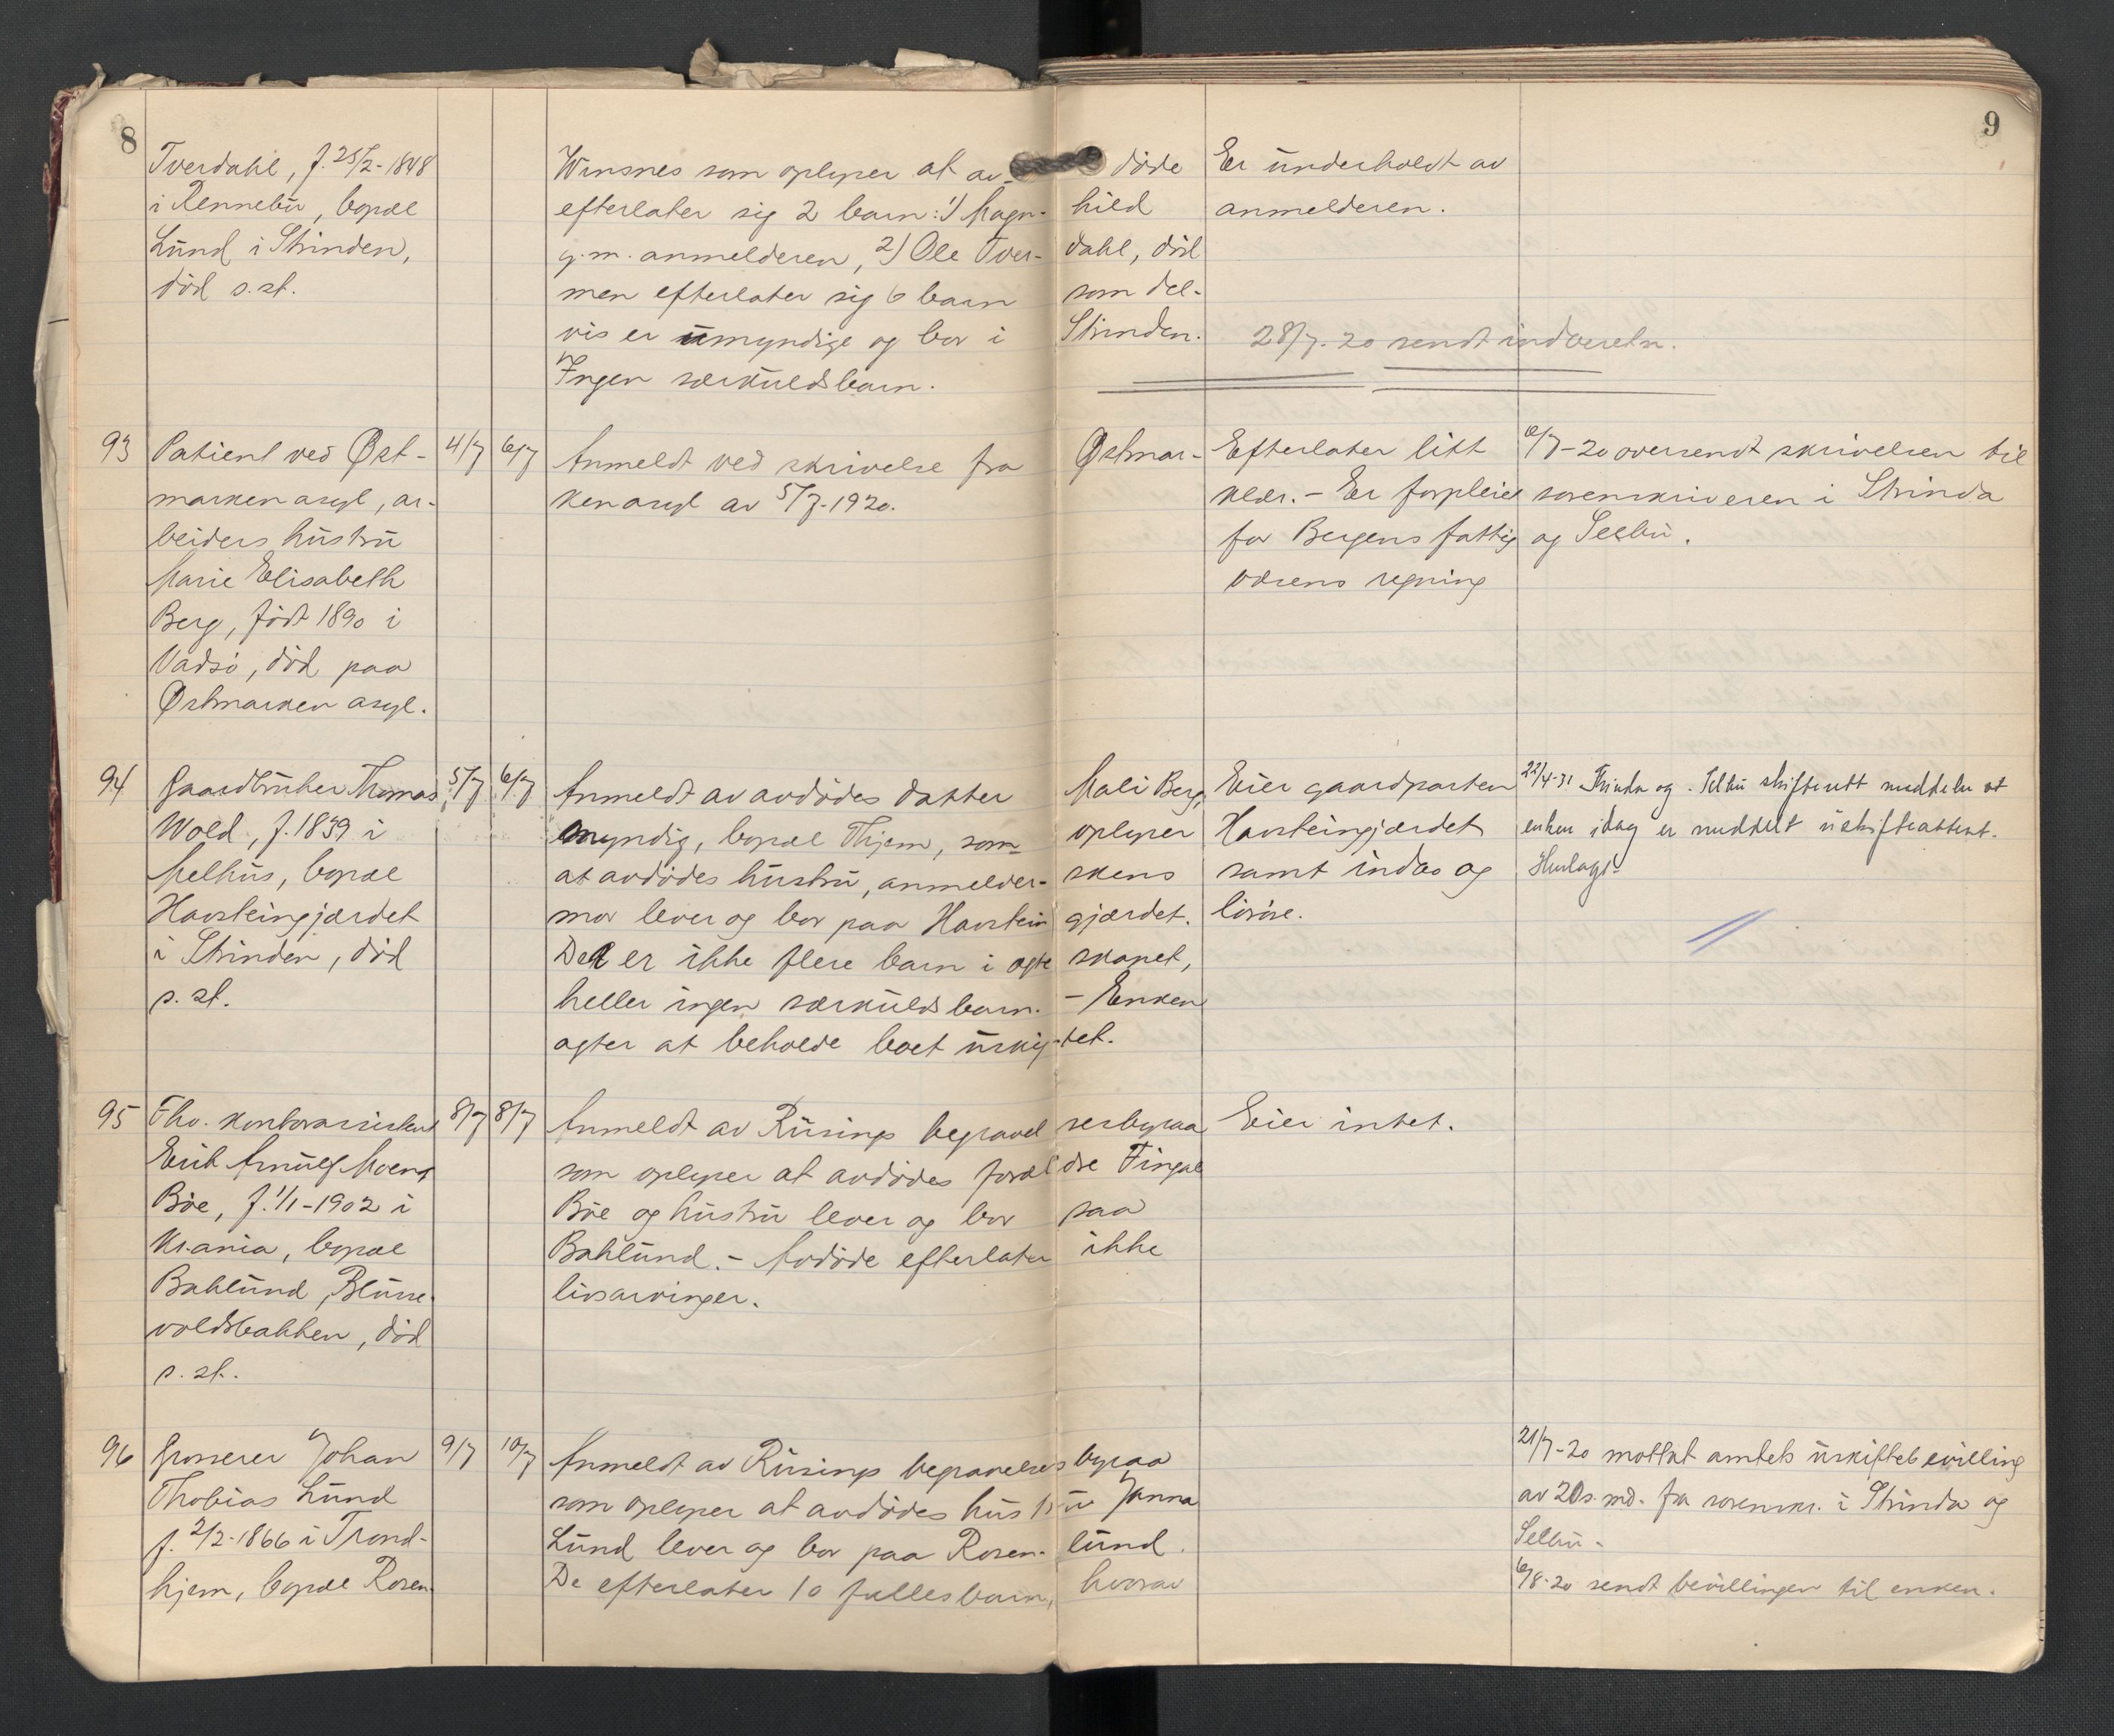 8
9
Tverdahl, f. 25/2-1848
i Rennebu, bopæl
Lund i Strinden,
död s. st.
Winsnes som oplyser at av- döde
efterlater sig 2 barn: 1) Magn- hild
g. m. anmelderen, 2) Ole Tver- dahl, död
men efterlater sig 6 barn som del-
vis er umyndige og bor i Strinden.
Ingen særkuldsbarn.
Er underholdt av
anmelderen.
28/7-20 sendt indberetn.
93
Patient ved Øst-
marken asyl, ar-
beiders hustru
Marie Elisabeth
Berg, födt 1890 i
Vadsö, död paa
Østmarken asyl.
4/7
6/7
Anmeldt ved skrivelse fra Østmar-
ken asyl av 5/7-1920.
Efterlater litt
klær. - Er forpleiet
for Bergens fattig
væsens regning
6/7-20 oversendt skrivelsen til
sorenskriveren i Strinda
og Selbu.
94
Gaardbruker Thomas
Wold, f. 1839 i
Melhus, bopæl
Havsteingjærdet
i Strinden, död
s. st.
5/7
6/7
Anmeldt av avdödes datter Mali Berg,
myndig, bopæl Thjem, som oplyser
at avdödes hustru, anmelder- skens
mor lever og bor paa Havstein gjærdet.
Det er ikke flere barn i egte skapet,
heller ingen særkuldsbarn. - Enken
agter at beholde boet uskif- tet.
Eier gaardparten
Havsteingjærdet
samt indbo og
lösöre.
22/4-31 Strinda og Selbu skifterett meddeler at
enken idag er meddelt uskifteattest.
95
Fhv. kontorassistent
Erik Arnulf Moens
Böe, f. 1/1-1902 i
Kr.ania, bopæl
Baklund, Blusse-
voldsbakken, död
s. st.
8/7
8/7
Anmeldt av Rüsings begravel sesbyraa
som oplyser at avdödes foræl dre Fingal
Böe og hustru lever og bor paa
Baklund. - Avdöde efterlater ikke
livsarvinger.
Eier intet.
96
Grosserer Johan
Thobias Lund
f. 2/2-1866 i Trond-
hjem, bopæl Rosen-
9/7
10/7
Anmeldt av Rüsings begravelses byraa
som oplyser at avdödes hust ru Janna
Lund lever og bor paa Rosen- lund.
De efterlater 10 fællesbarn, hvorav
21/7-20 mottat amtets uskiftebevilling
av 20 s. md. fra sorenskr. i Strinda og
Selbu.
6/8-20 sendt bevillingen til enken.